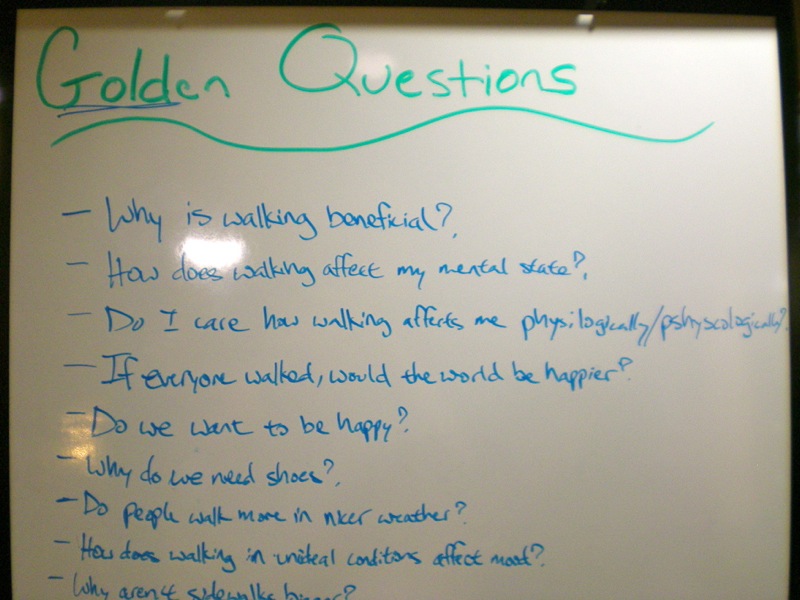 Golden Questions
- Why is walking beneficial?
- How does walking affect my mental state?
- Do I care how walking affects me physilogically/pshyscologically?
- If everyone walked, would the world be happier?
- Do we want to be happy?
- Why do we need shoes?
- Do people walk more in nicer weather?
- How does walking in unideal conditions affect mood?
- Why aren't sidewalks bigger?